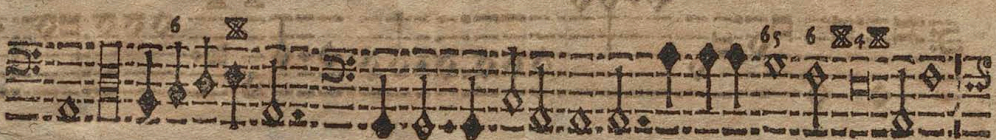 6 6 5 6 4